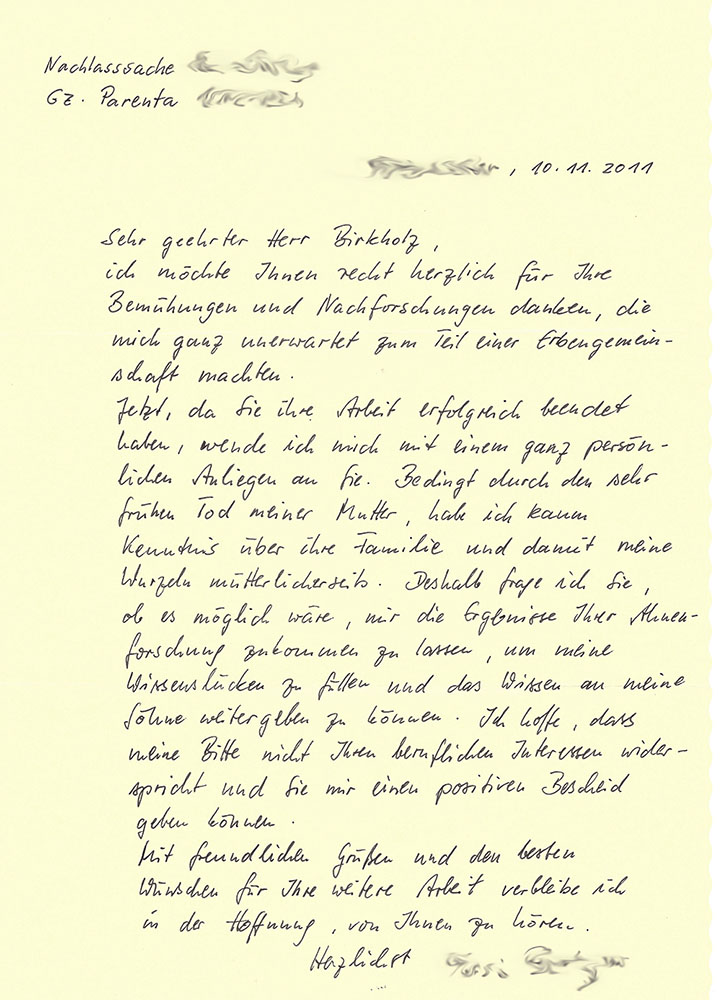 Nachlasssache
Gz. Parenta
, 10.11.2011
Sehr geehrter Herr Birkholz,
ich möchte Ihnen recht herzlich für Ihre
Bemühungen und Nachforschungen danken, die
mich ganz unerwartet zum Teil einer Erbengemein-
schaft machten.
Jetzt, da Sie ihre Arbeit erfolgreich beendet
haben, wende ich mich mit einem ganz persön-
lichen Anliegen an Sie. Bedingt durch den sehr
frühen Tod meiner Mutter, habe ich kaum
Kenntnis über ihre Familie und damit meine
Wurzeln mütterlicherseits. Deshalb frage ich Sie,
ob es möglich wäre, mir die Ergebnisse Ihrer Ahnen-
forschung zukommen zu lassen, um meine
Wissenslücken zu füllen und das Wissen an meine
Söhne weitergeben zu können. Ich hoffe, dass
meine Bitte nicht Ihren beruflichen Interessen wider-
spricht und Sie mir einen positiven Bescheid
geben können.
Mit freundlichen Grüßen und den besten
Wünschen für Ihre weitere Arbeit verbleibe ich
in der Hoffnung, von Ihnen zu hören.
Herzlichst